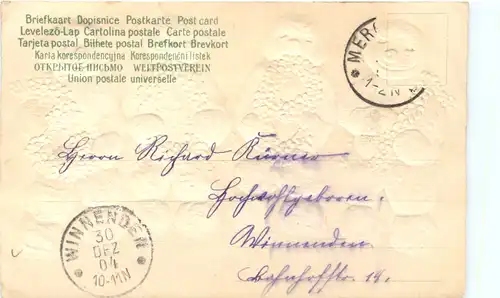 Briefkaart Dopisnice Postkarte Post card
Levelező-Lap Cartolina postale Carte postale
Tarjeta postal Bilhete postal Brefkort Brevkort
Karta korespondencyjna Korespondenční listek
ОТКРЫТОЕ ПИСЬМО WELTPOSTVEREIN
Union postale universelle
MER
1-2N
Herrn Richard Kürner
Hochwohlgeboren.
Winnenden.
Bahnhofstr. 14.
WINNENDEN
30
DEZ
04
10-11N